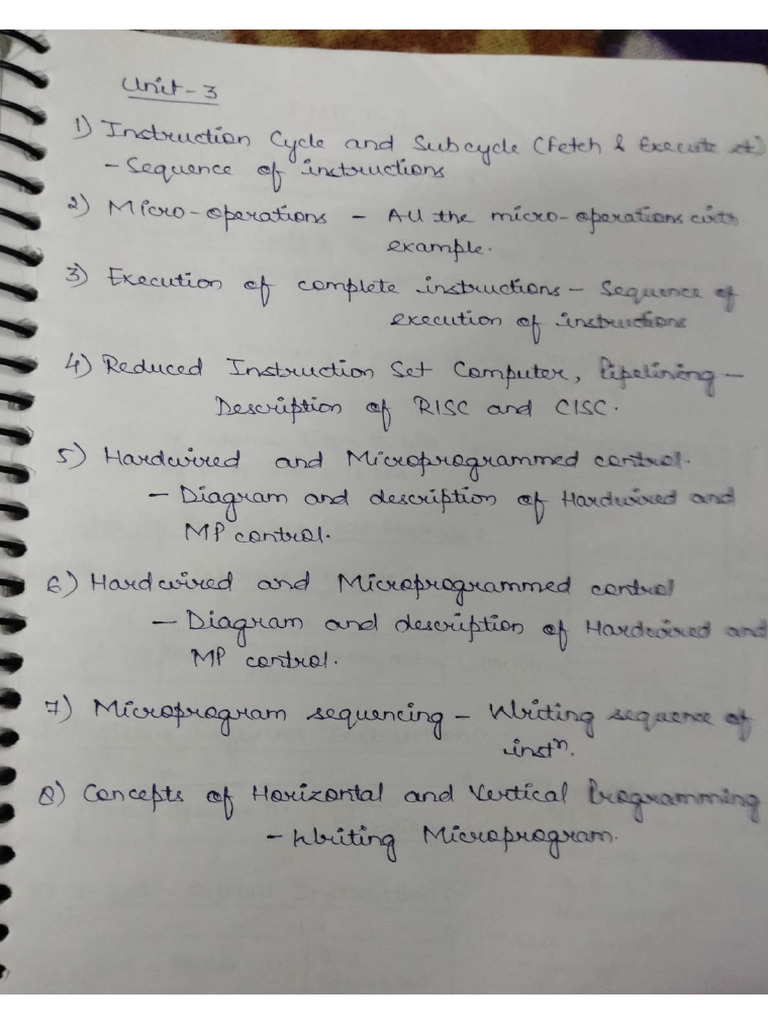 Unit-3
1) Instruction Cycle and Subcycle (Fetch & Execute et)
- Sequence of instructions
2) Micro-operations - All the micro-operations with
example.
3) Execution of complete instructions - Sequence of
execution of instructions
4) Reduced Instruction Set Computer, Pipelining -
Description of RISC and CISC.
5) Hardwired and Microprogrammed control.
- Diagram and description of Hardwired and
MP control.
6) Hardwired and Microprogrammed control
- Diagram and description of Hardwired and
MP control.
7) Microprogram sequencing - Writing sequence of
instⁿ.
8) Concepts of Horizontal and Vertical Programming
- Writing Microprogram.